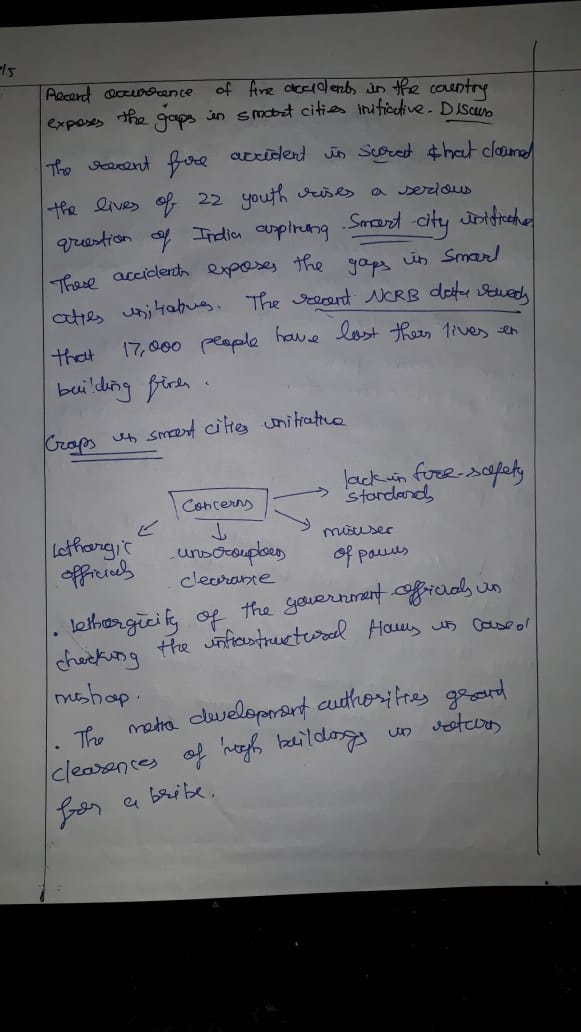 15
Recent occurrence of fire accidents in the country
exposes the gaps in smart cities initiative. Discuss
The recent fire accident in Surat that claimed
the lives of 22 youth raises a serious
question of India aspiring Smart city initiative
These accidents exposes the gaps in smart
cities initiatives. The recent NCRB data reveals
that 17,000 people have lost their lives in
building fires.
Gaps in smart cities initiative
Concerns
lack in fire-safety
standards
misuser
of powers
unscrupulous
clearance
Lethargic
officials
. lethargicity of the government officials in
checking the infrastructural flaws in case of
mishap.
. The metro development authorities grand
clearences of high buildings in return
for a bribe.